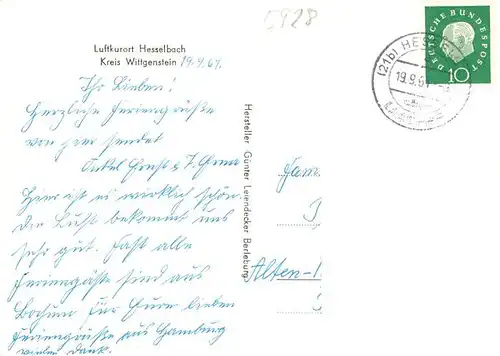 5928
Luftkurort Hesselbach
Kreis Wittgenstein 19.9.61.
Ihr Lieben!
Herzliche Feriengrüße
von hier sendet
Onkel Ernst u. T. Erna
Hier ist es wirklich schön
Die Luft bekommt uns
sehr gut. Fast alle
Feriengäste sind aus
Bochum Für Eure lieben
Feriengrüße aus Hamburg
vielen Dank.
Hersteller Günter Leiendecker Berleburg
DEUTSCHE BUNDESPOST
10
(21b) HESSEL
19.9.61
Fam
Alten-